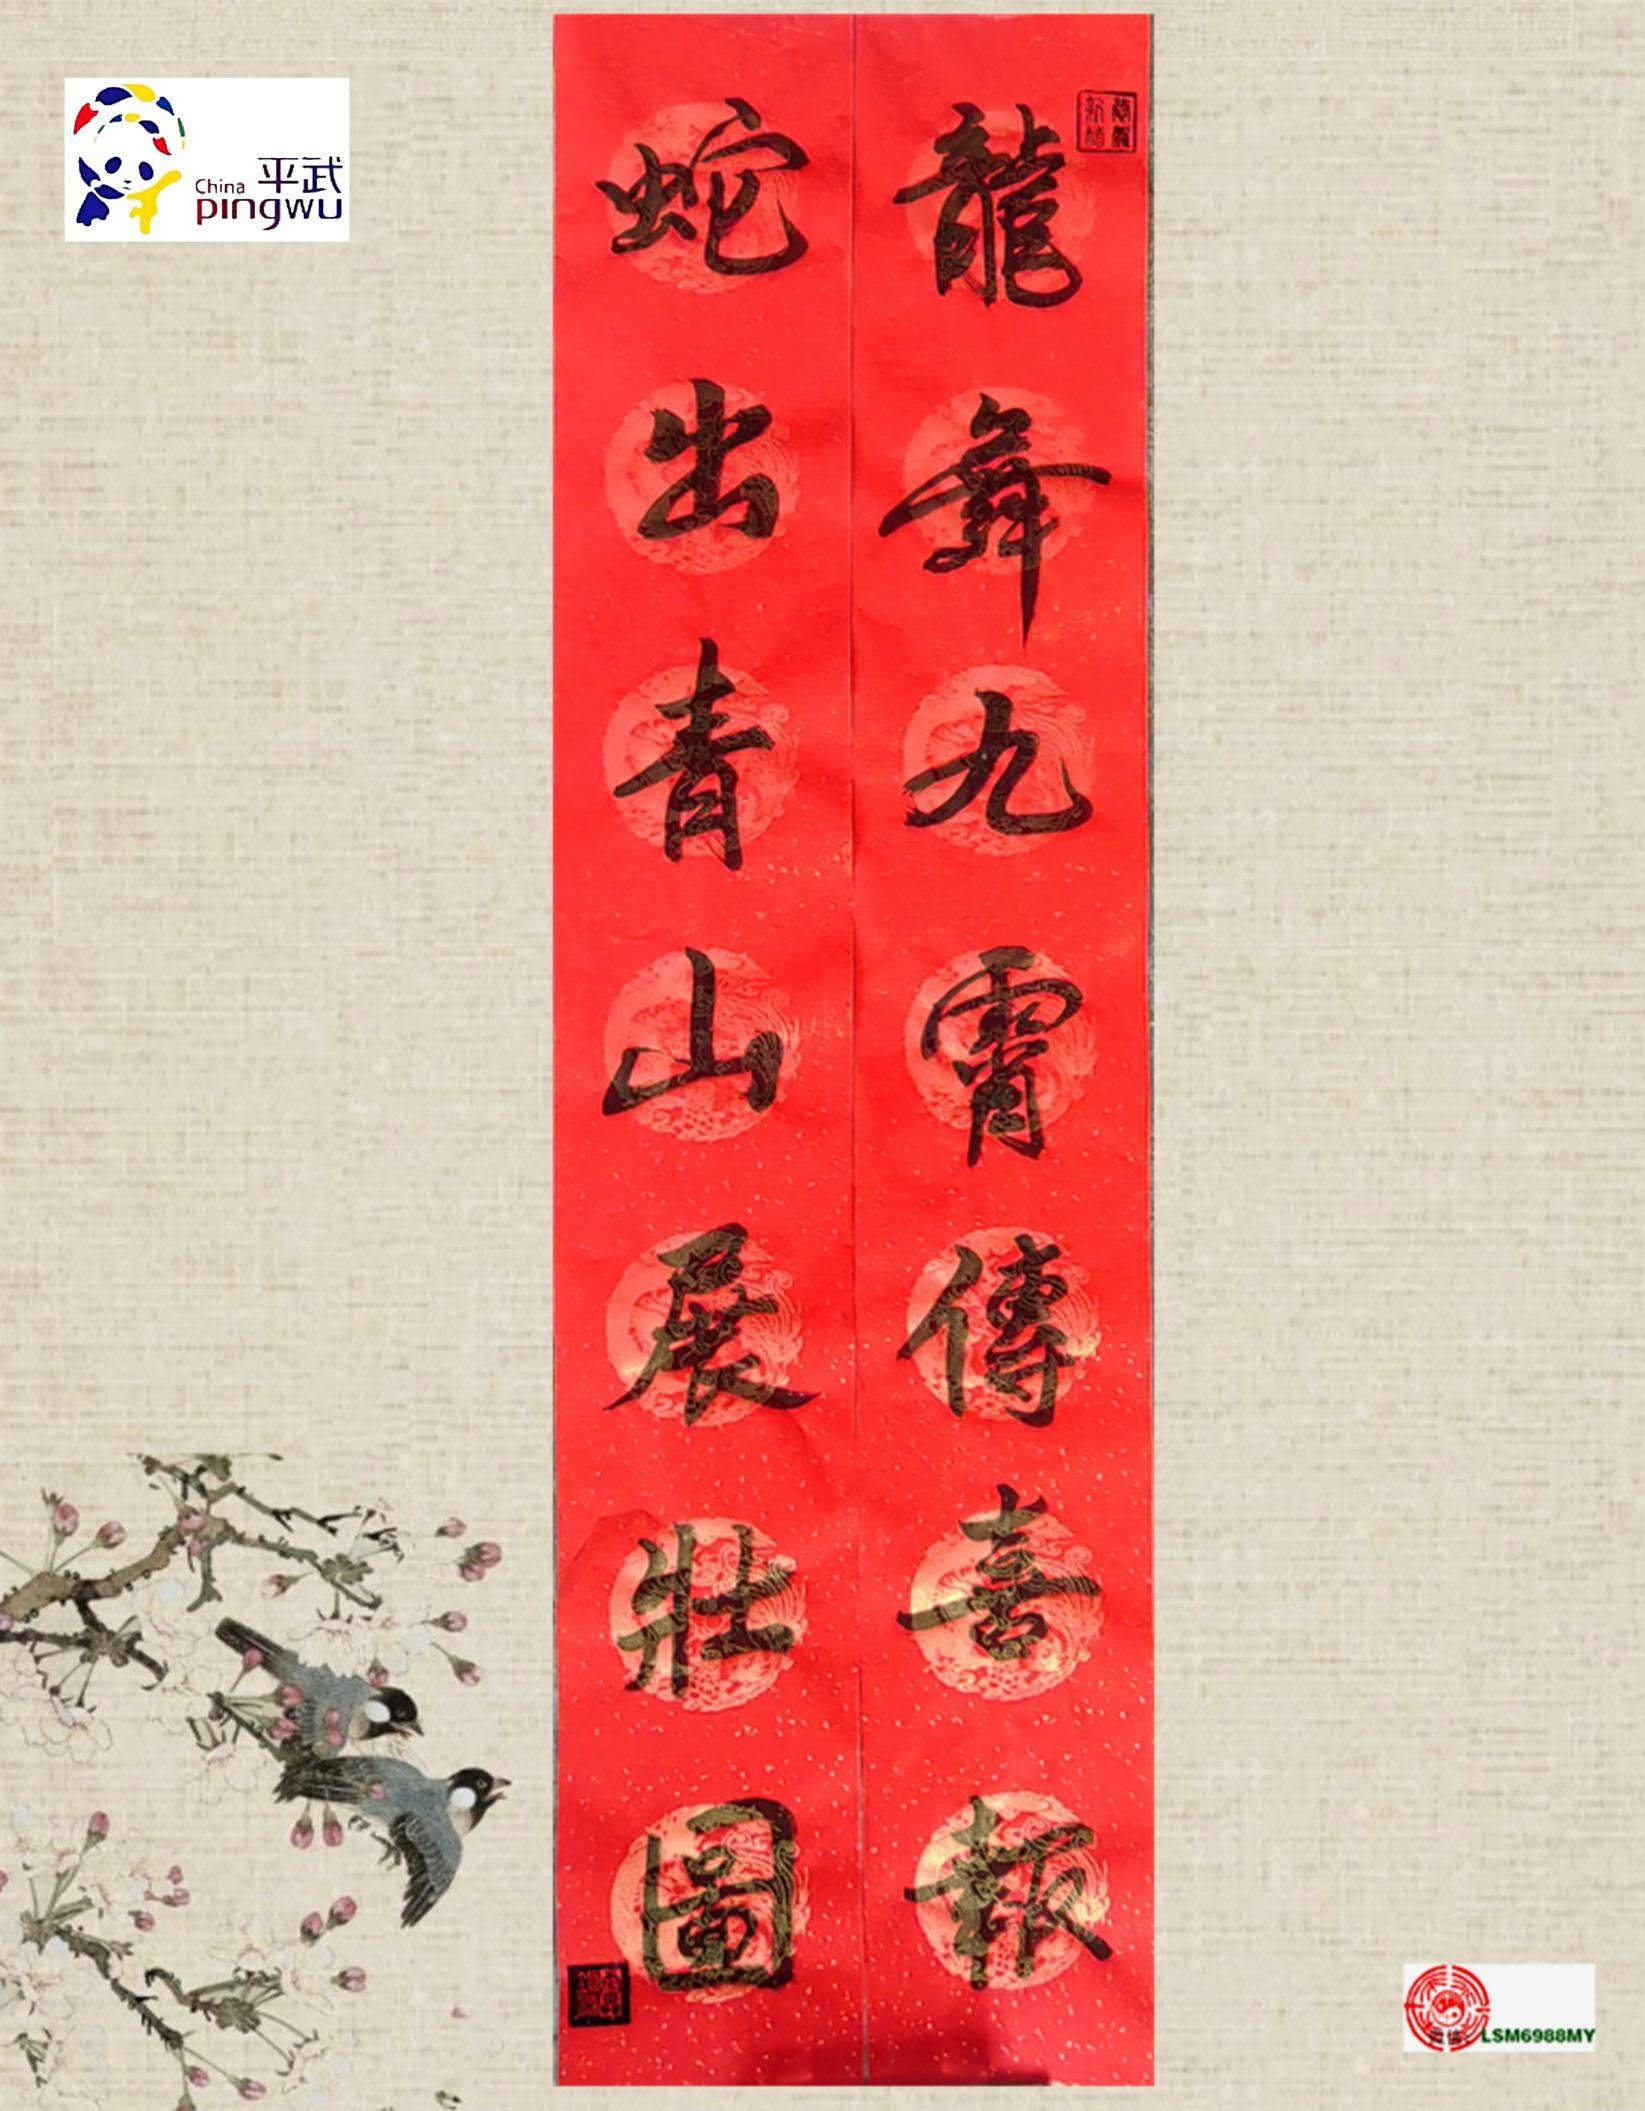 龍舞九霄傳喜報
蛇出青山展壯圖
China 平武
pingwu
LSM6988MY